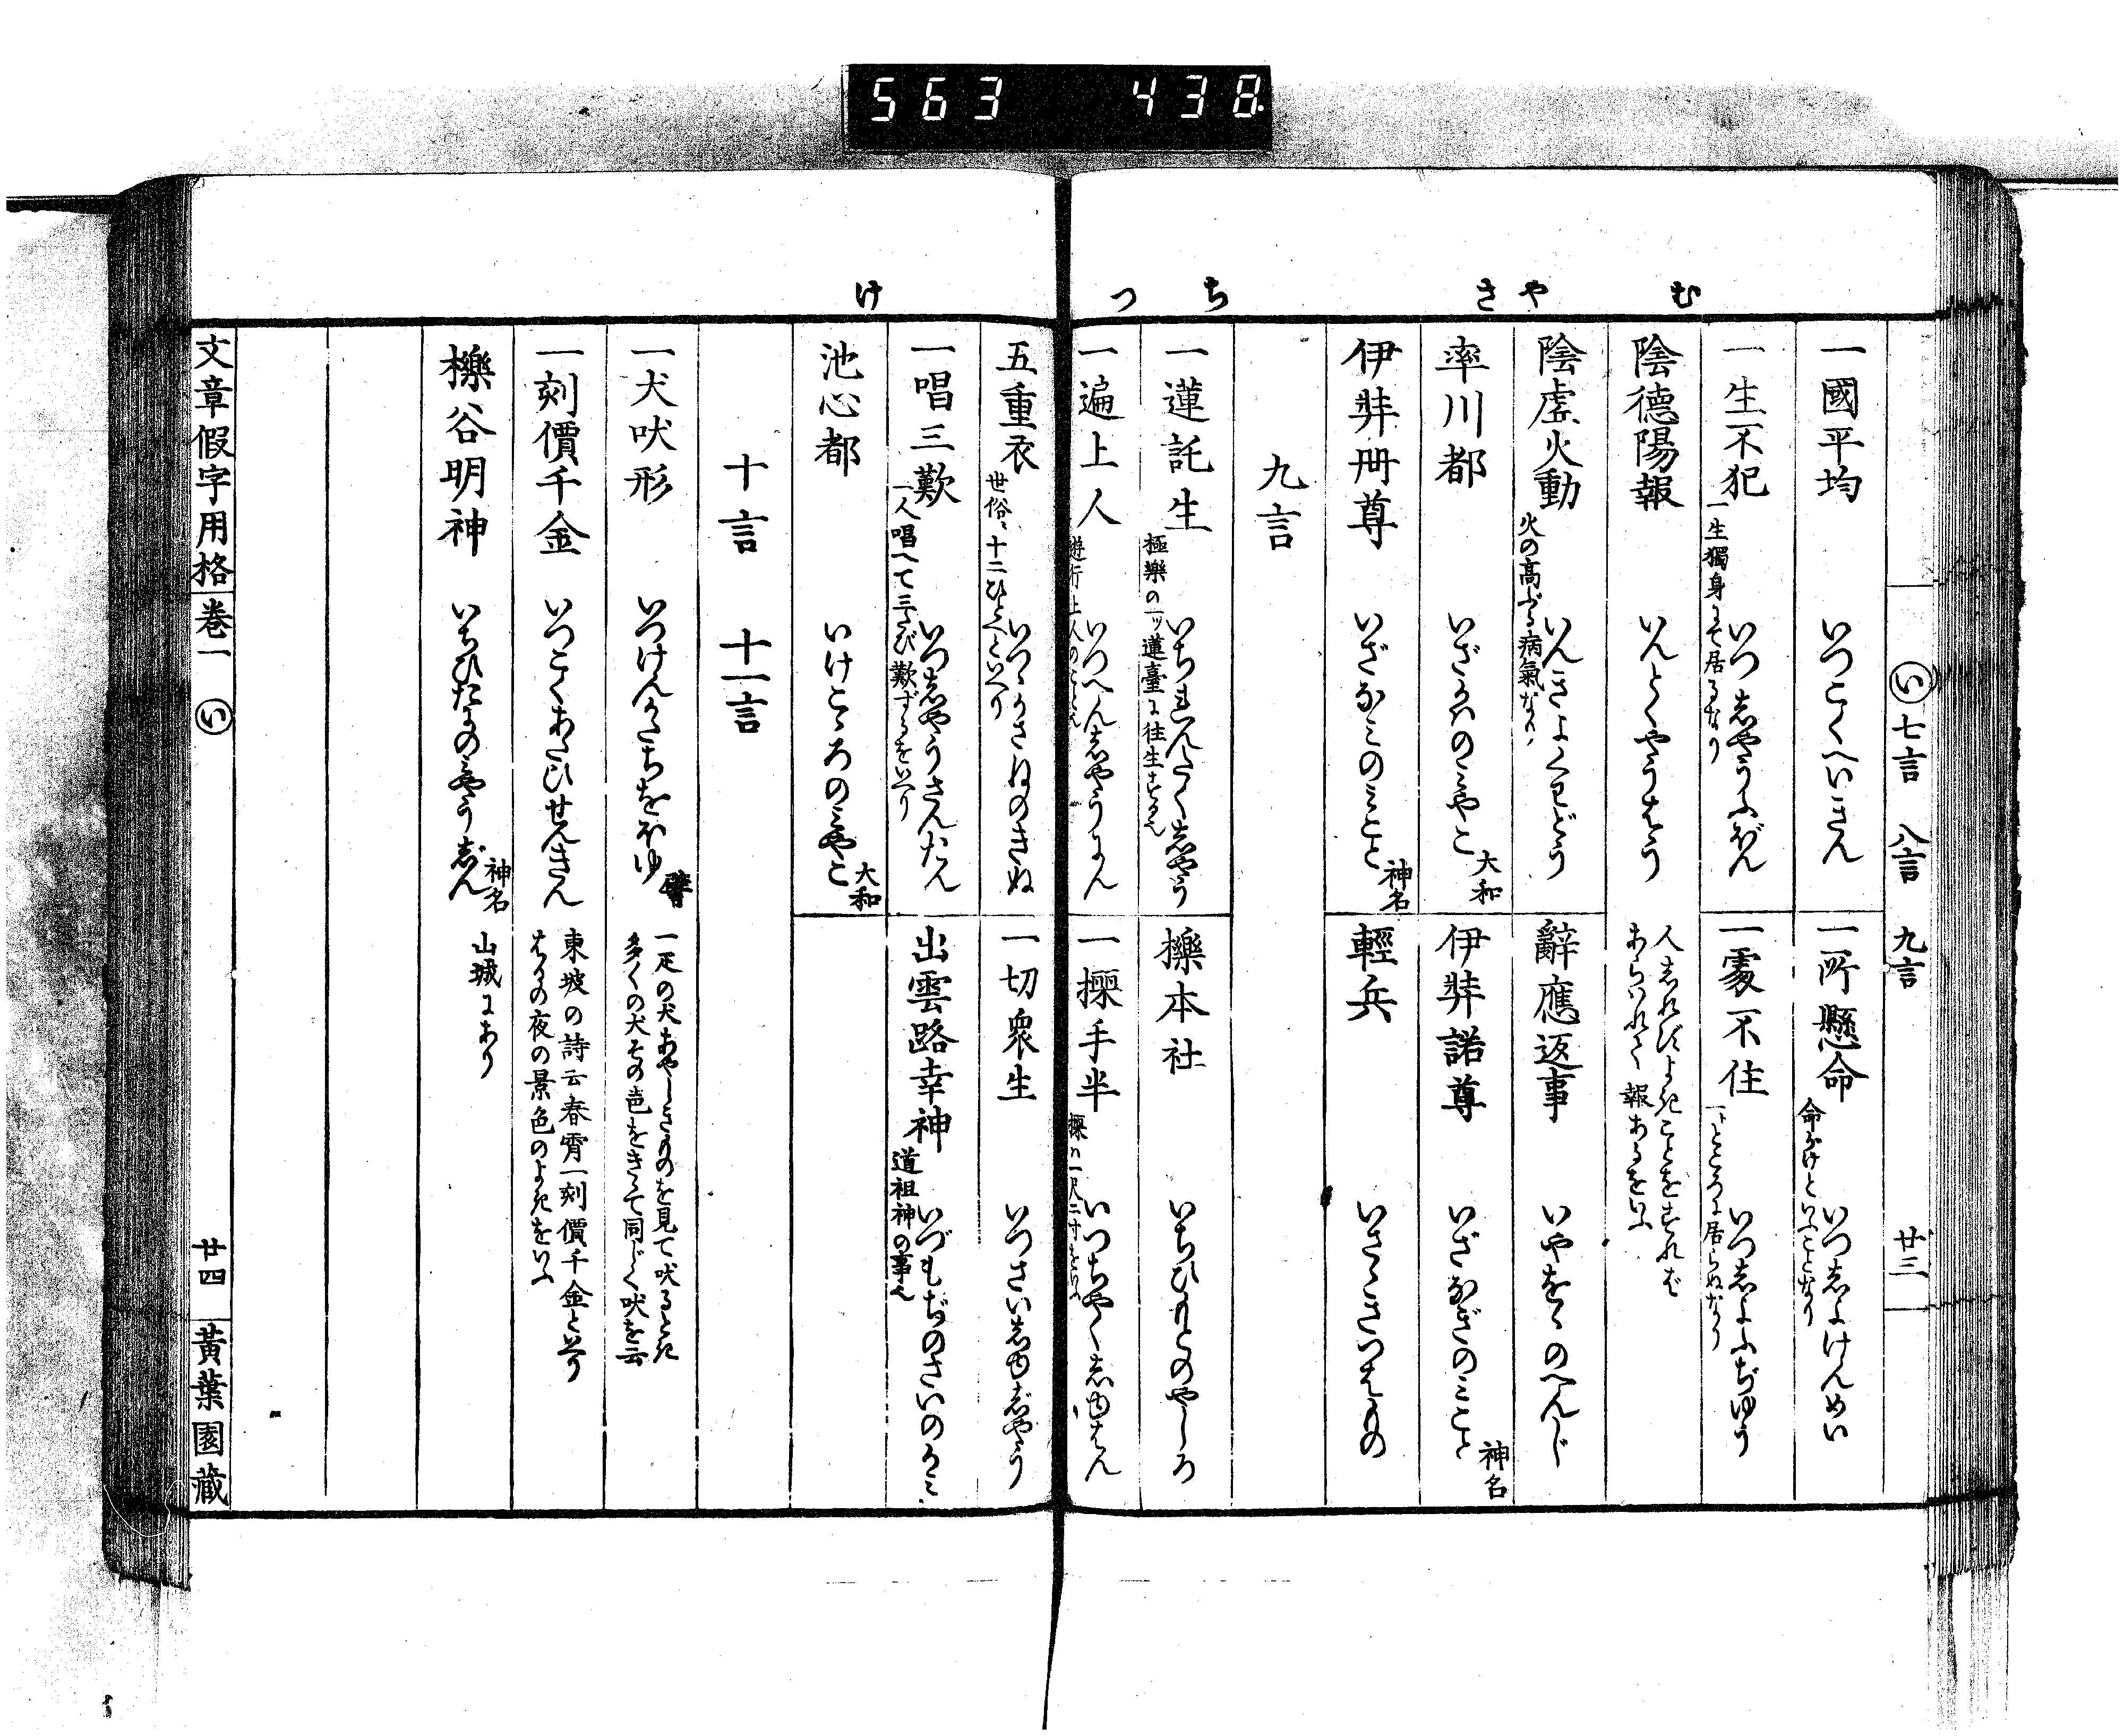 563 438
む や さ ち つ
い 七言 八言 九言 廿三
一國平均 いつこくへいきん
一所懸命 命がけといふことなり いつしよけんめい
一生不犯 一生獨身にて居るなり いつしやうふぼん
一処不住 一トところに居らぬなり いつしよふぢゆう
陰德陽報 いんとくやうはう
人しれずよきことをすれば
あらいれて報あるをいふ
陰虚火動 火の高ぶる病氣なり いんきよくわどう
辭應返事 いやをゝのへんじ
率川都 いざかはのみやこ 大和
伊弉諾尊 いざなぎのみこと 神名
伊弉冊尊 いざなみのみこと 神名
輕兵 いさゝきつはもの
九言
一蓮託生 極樂の一ツ蓮臺に往生する也 いちれんたくしやう
櫟本社 いちひもとのやしろ
一遍上人 遊行上人のこと也 いつへんしやうにん
一搩手半 搩ハ一尺二寸をいふ いつちやくしゆはん
け
五重衣 世俗ニ十二ひとへといへり いつゝかさねのきぬ
一切衆生 いつさいしゆじやう
一唱三歎 一人唱へて三たび歎ずるをいへり いつしやうさんたん
出雲路幸神 道祖神の事也 いづもぢのさいのかみ
池心都 いけこゝろのみやこ 大和
十言 十一言
一犬吠形 いつけんかたちをほゆ 譬
一疋の犬あやしきものを見て吠るとき
多くの犬その声をきゝて同じく吠を云
一刻價千金 いつこくあたひせんきん
東坡の詩云春宵一刻價千金と是り
はるの夜の景色のよきをいふ
櫟谷明神 いちひたにのみやうじん 神名
山城にあり
文章假字用格 卷一 い 廿四 黃葉園藏